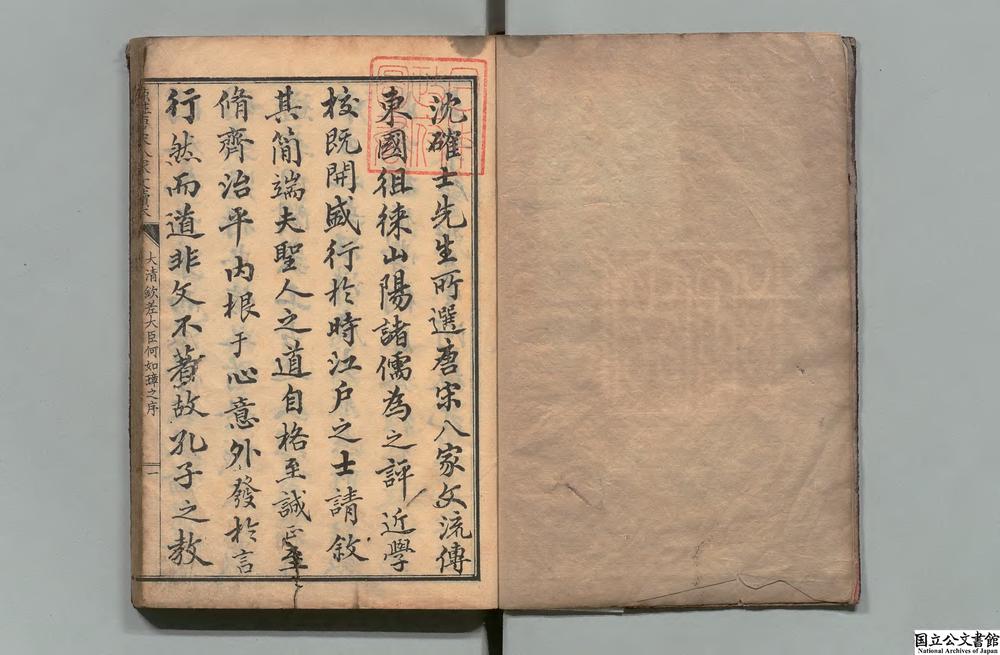 沈確士先生所選唐宋八家文流傳
東國徂徠山陽諸儒為之評近學
校既開盛行於時江戶之士請敘
其簡端夫聖人之道自格至誠正至
脩齊治平內根于心意外發於言
行然而道非文不著故孔子之教
大清欽差大臣何如璋之序
一
国立公文書館
National Archives of Japan